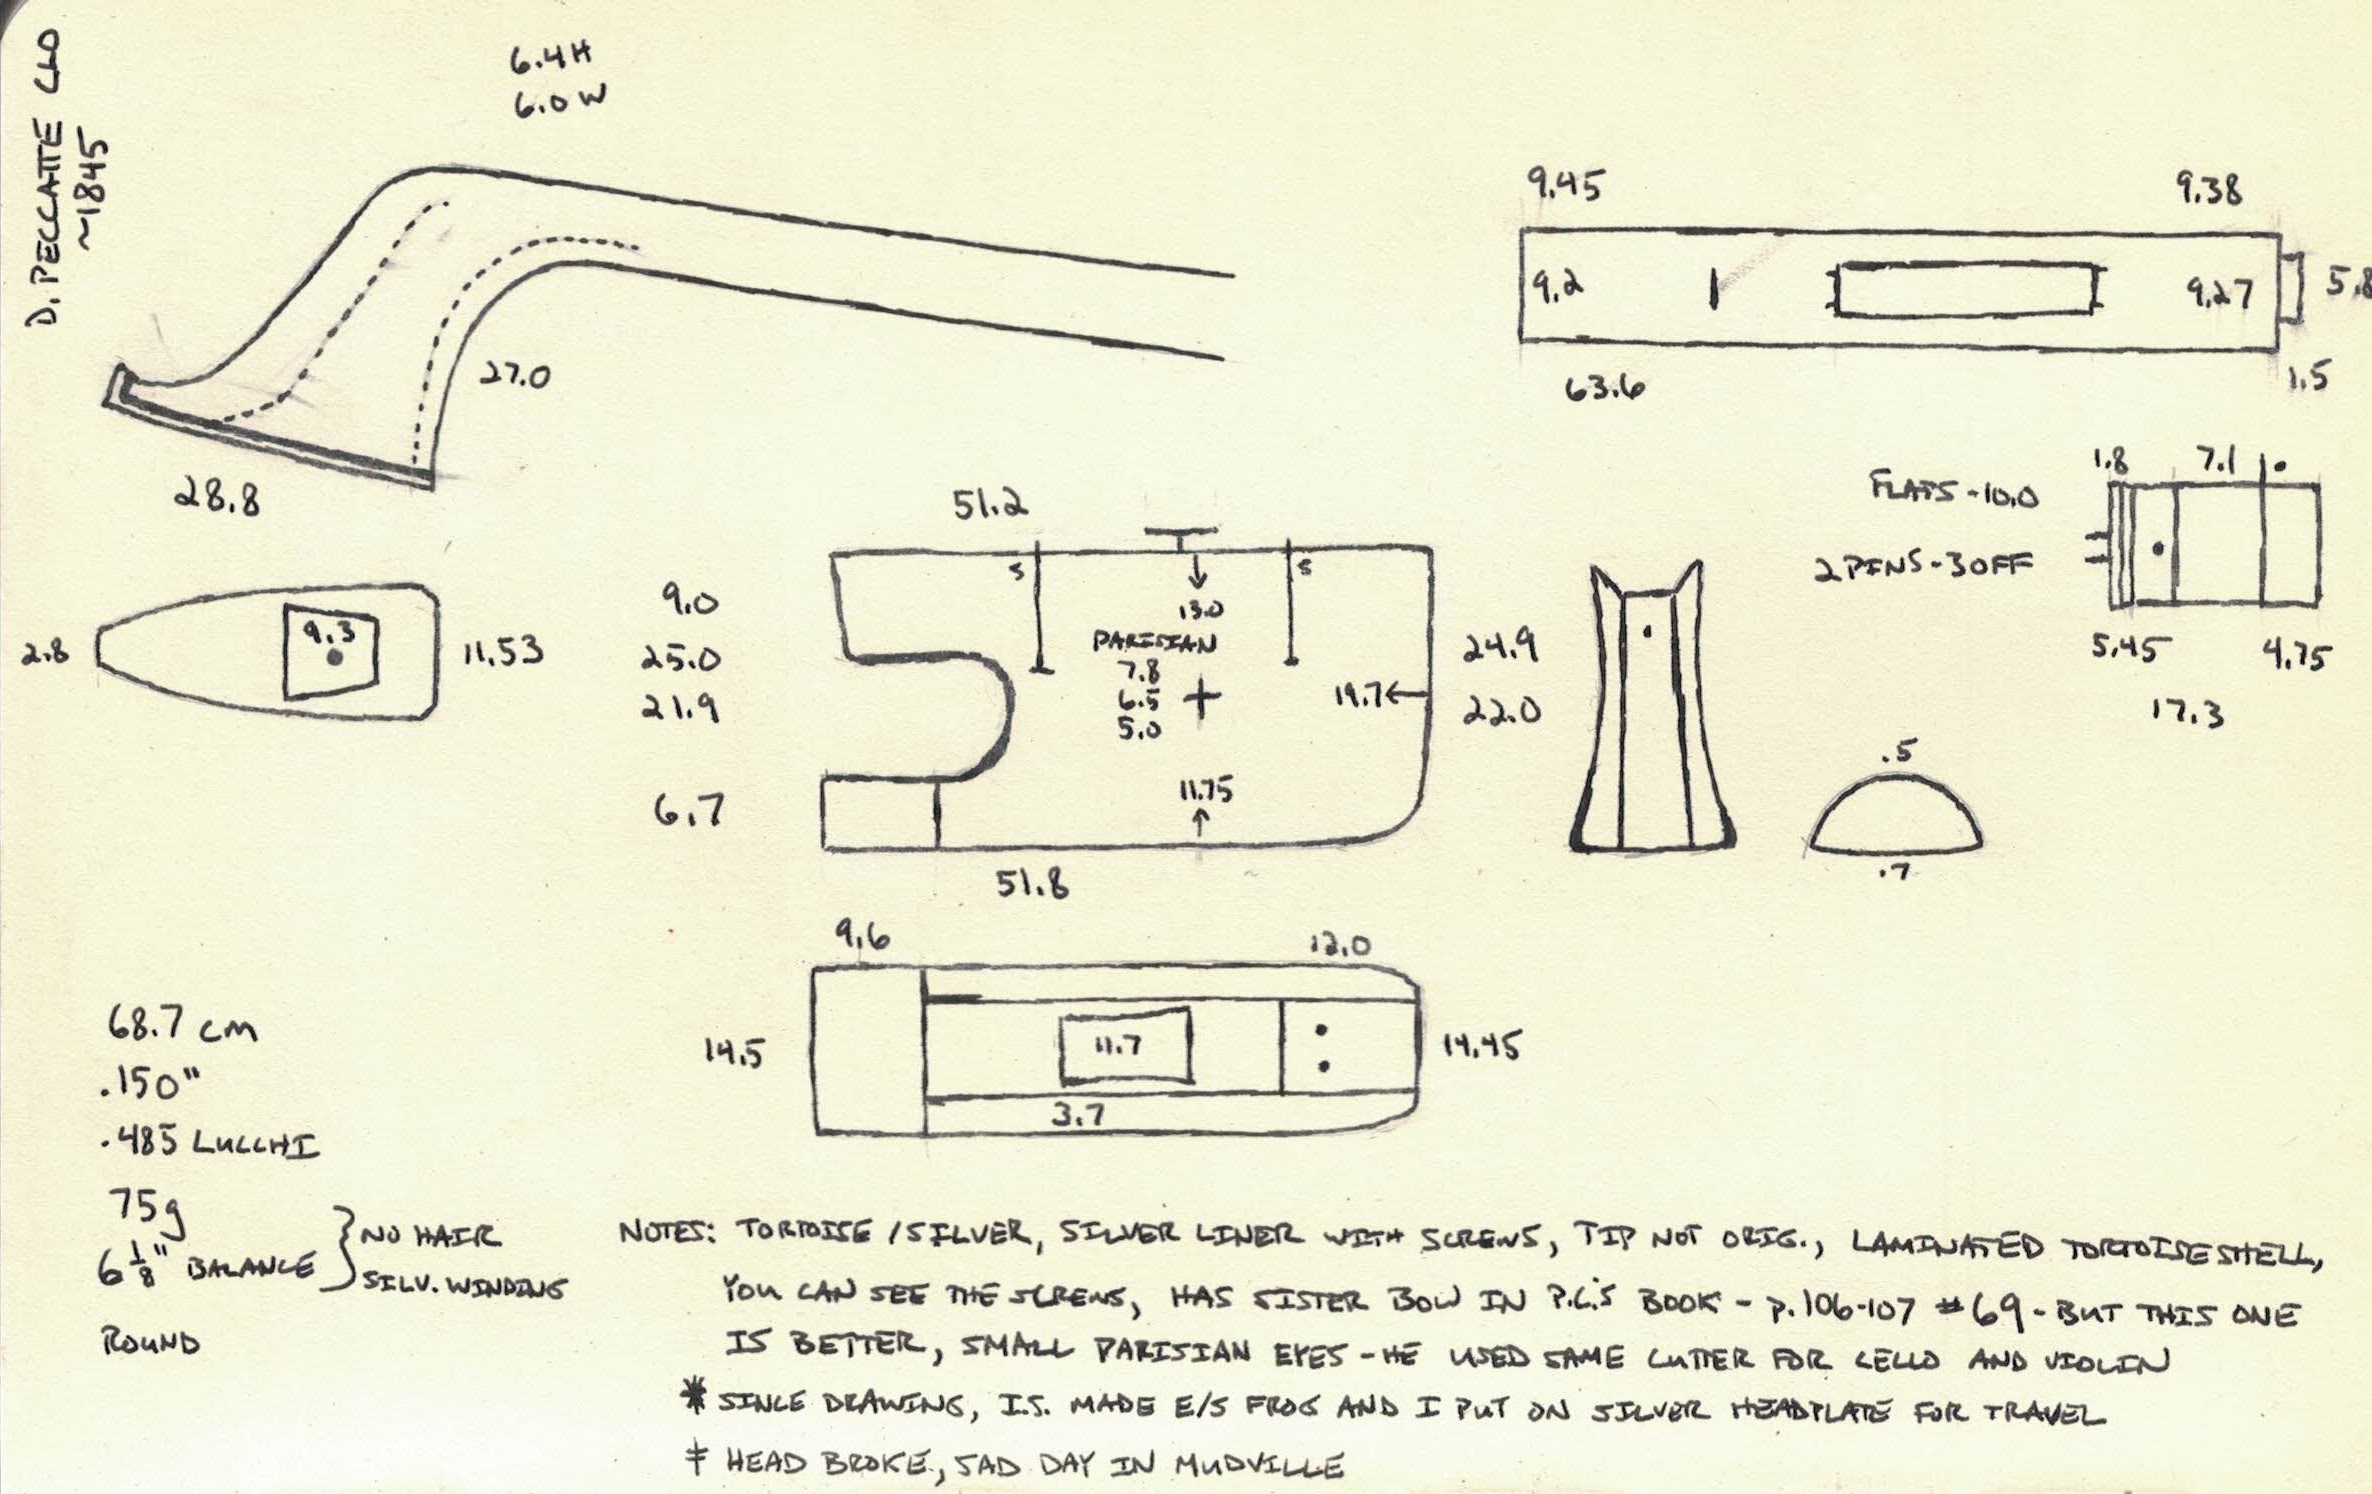 D. PECCATTE CLO
~1845
6.4H
6.0W
27.0
28.8
9.45
9.38
9.2
9.27
5.8
63.6
1.5
2.8
9.3
11.53
51.2
S
S
13.0
PARISIAN
7.8
6.5
5.0
19.7
11.75
9.0
25.0
21.9
6.7
24.9
22.0
51.8
FLATS - 10.0
2 PINS - 3 OFF
1.8
7.1
5.45
4.75
17.3
.5
.7
9.6
12.0
14.5
11.7
14.45
3.7
68.7 cm
.150"
.485 LUCCHI
75g
6 1/8" BALANCE
} NO HAIR
SILV. WINDING
ROUND
NOTES: TORTOISE / SILVER, SILVER LINER WITH SCREWS, TIP NOT ORIG., LAMINATED TORTOISESHELL,
YOU CAN SEE THE SCREWS, HAS SISTER BOW IN P.C.'S BOOK - p.106-107 #69 - BUT THIS ONE
IS BETTER, SMALL PARISIAN EYES - HE USED SAME CUTTER FOR CELLO AND VIOLIN
* SINCE DRAWING, I.S. MADE E/S FROG AND I PUT ON SILVER HEADPLATE FOR TRAVEL
‡ HEAD BROKE, SAD DAY IN MUDVILLE